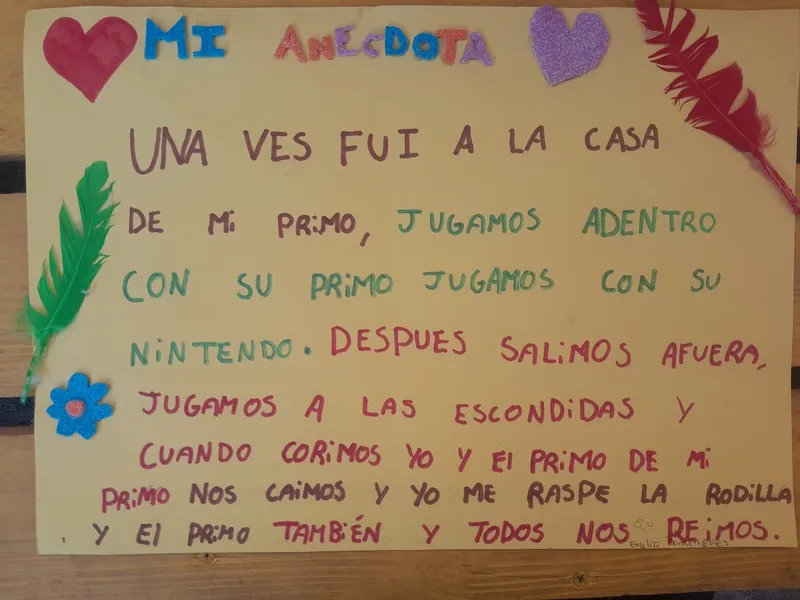 MI ANECDOTA
UNA VES FUI A LA CASA
DE Mi PRiMO, JUGAMOS ADENTRO
CON SU PRiMO JUGAMOS CON SU
NiNTENDO. DESPUES SALiMOS AFUERA,
JUGAMOS A LAS ESCONDiDAS Y
CUANDO CORiMOS YO Y El PRiMO DE Mi
PRiMO NOS CAiMOS Y YO ME RASPE LA RODiLLA
. Y El PRiMO TAMBiÉN Y TODOS NOS REiMOS.